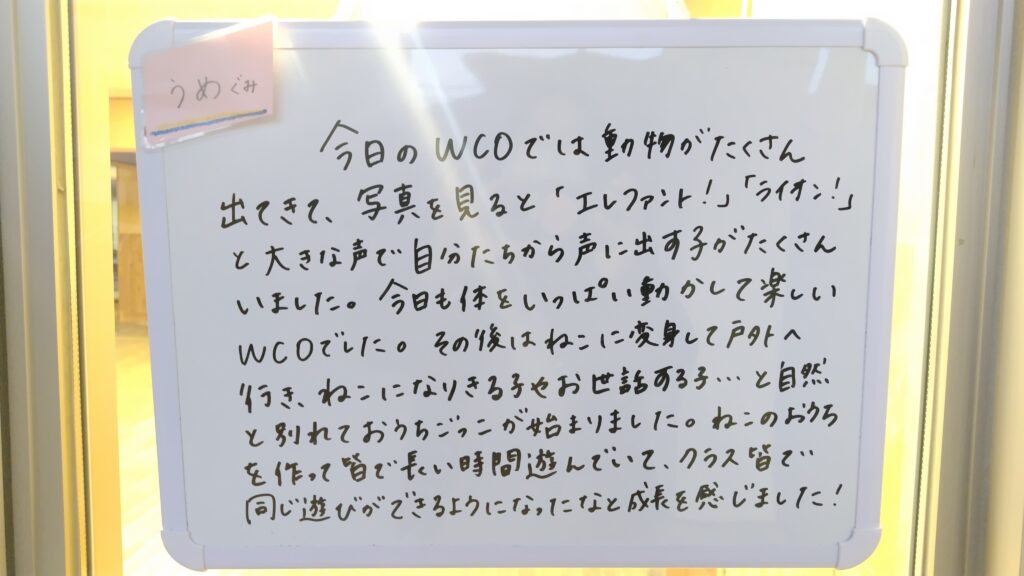 うめぐみ
今日のWCOでは動物がたくさん
出てきて、写真を見ると「エレファント!」「ライオン!」
と大きな声で自分たちから声に出す子がたくさん
いました。今日も体をいっぱい動かして楽しい
WCOでした。その後はねこに変身して戸外へ
行き、ねこになりきる子やお世話する子…と自然
と別れておうちごっこが始まりました。ねこのおうち
を作って皆で長い時間遊んでいて、クラス皆で
同じ遊びができるようになったなと成長を感じました!